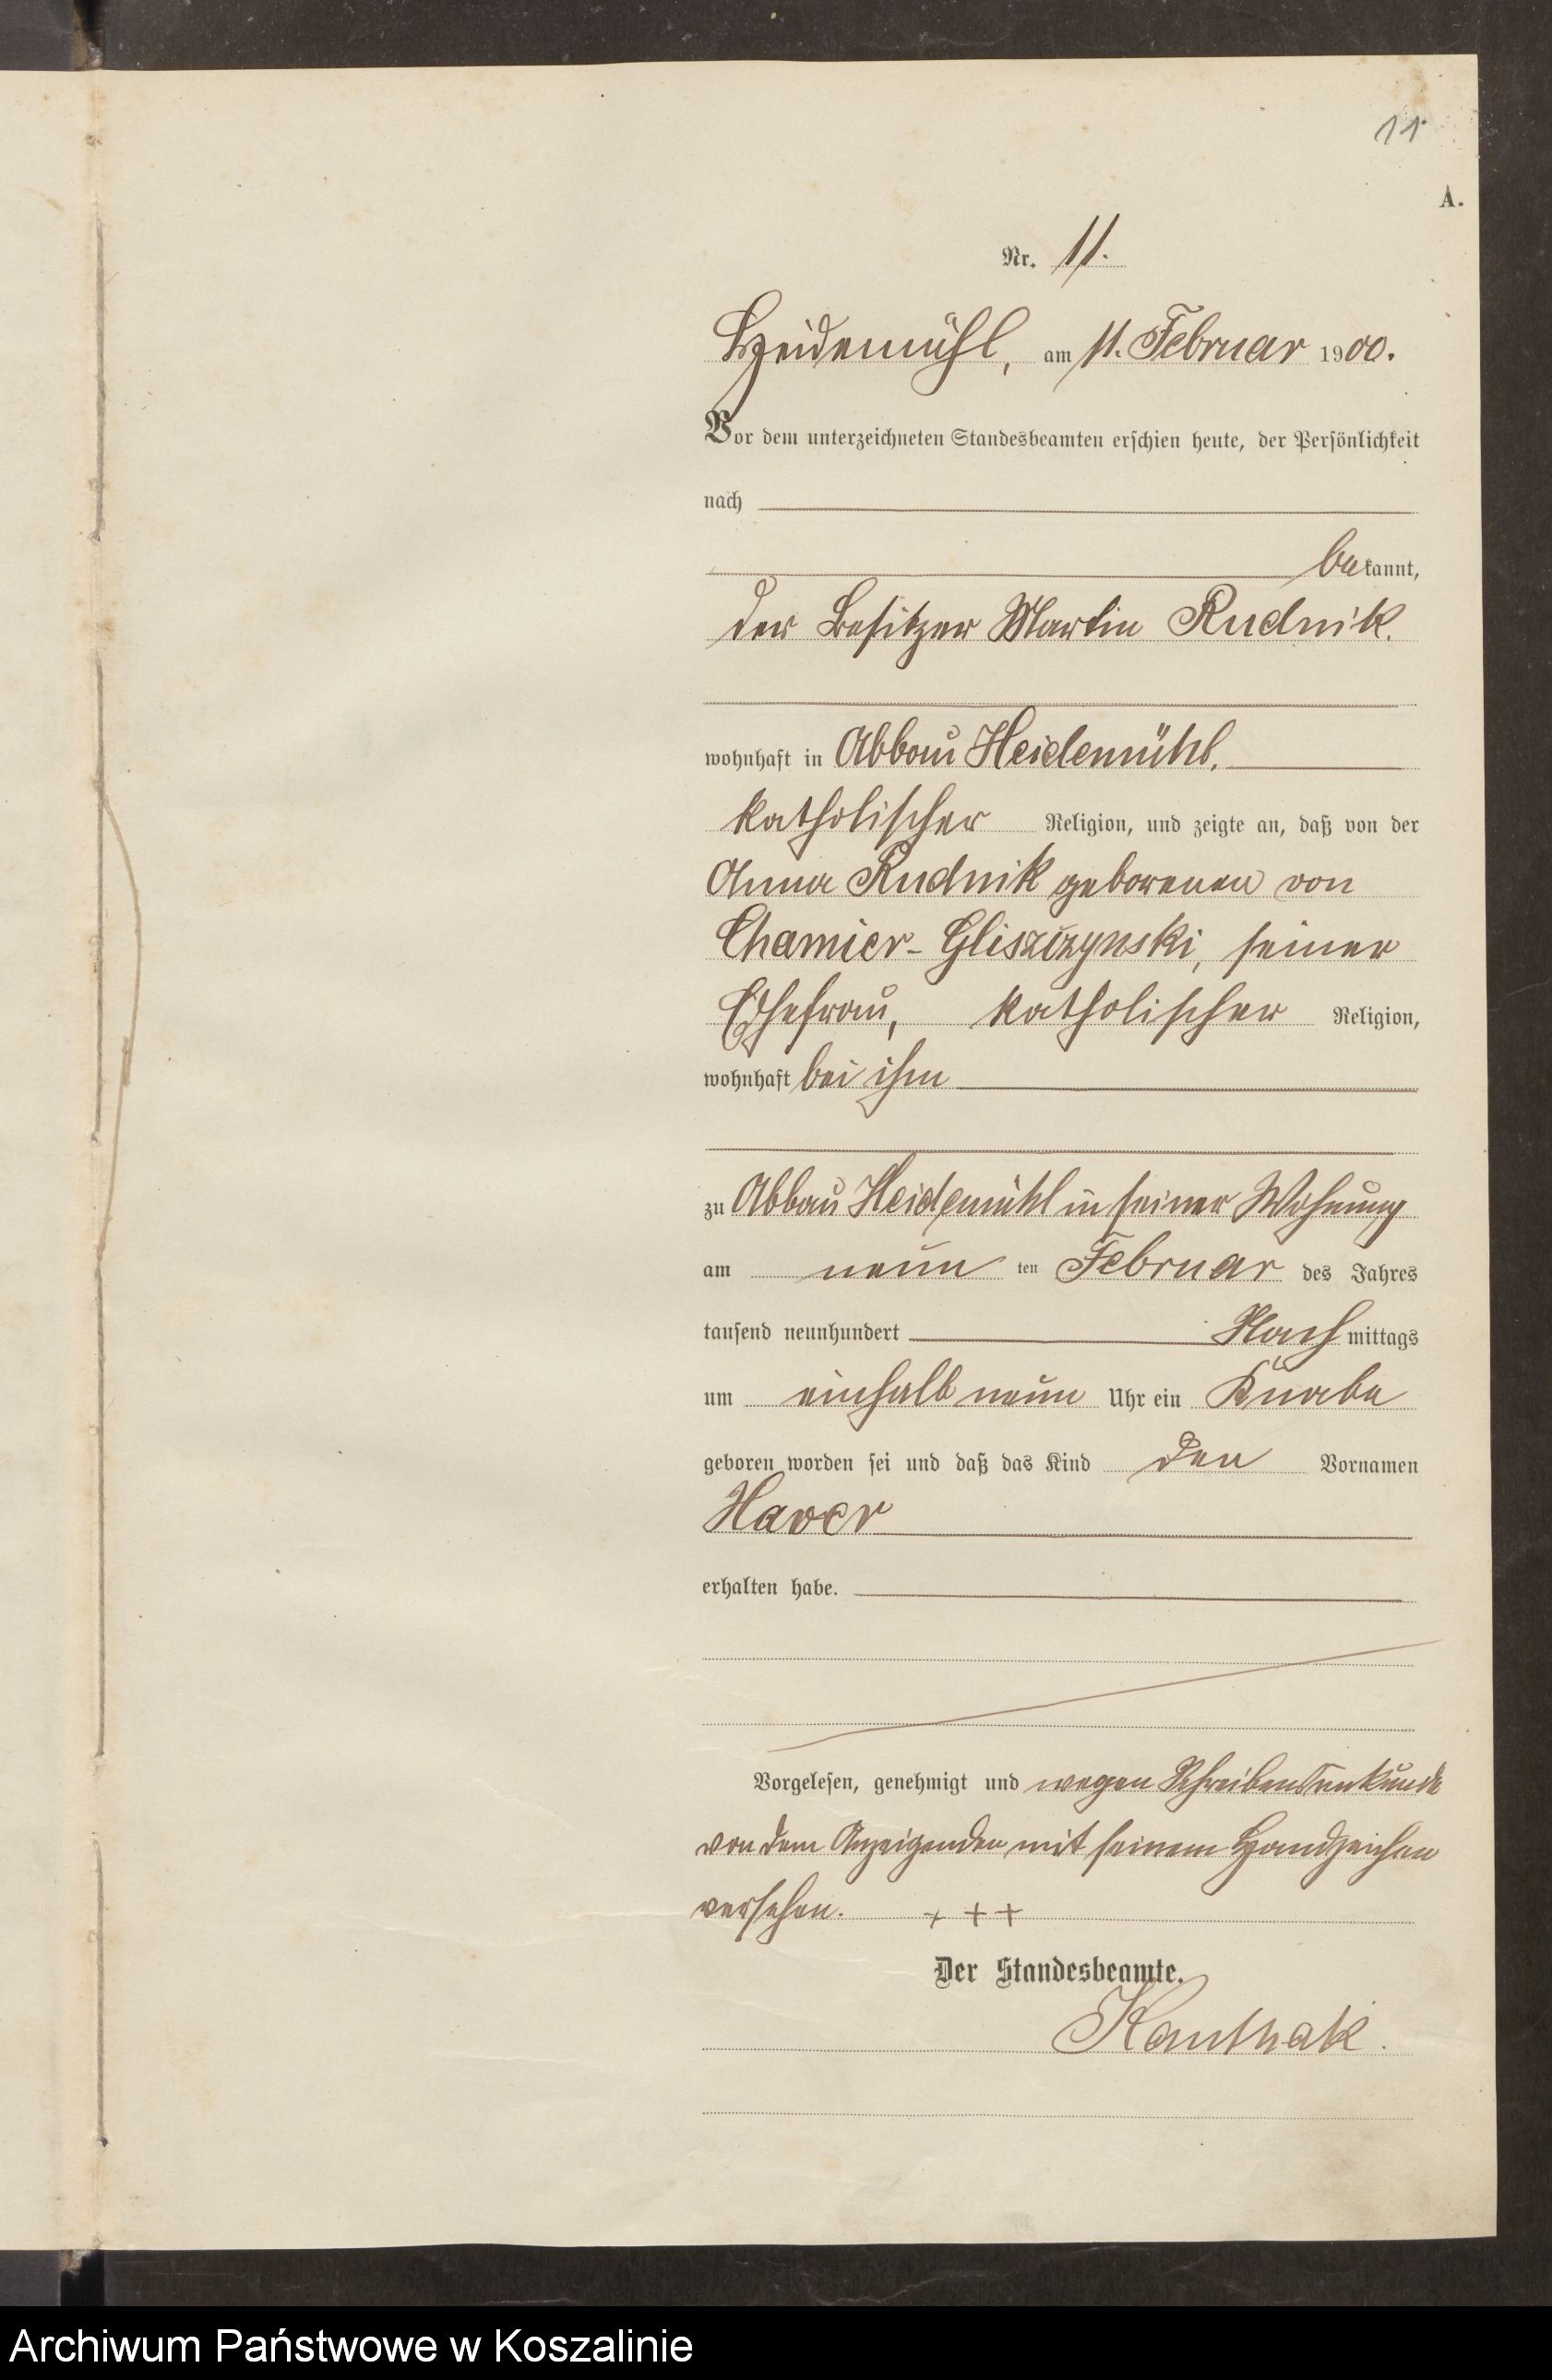 11
A.
Nr. 11.
Heidemühl, am 11. Februar 1900.
Vor dem unterzeichneten Standesbeamten erschien heute, der Persönlichkeit
nach
bekannt,
der Besitzer Martin Rudnik.
wohnhaft in Abbau Heidemühl,
katholischer Religion, und zeigte an, daß von der
Anna Rudnik geborenen von
Chamier-Gliszczynski, seiner
Ehefrau, katholischer Religion,
wohnhaft bei ihm
zu Abbau Heidemühl in seiner Wohnung
am neun ten Februar des Jahres
tausend neunhundert Nach mittags
um einhalb neun Uhr ein Knabe
geboren worden sei und daß das Kind den Vornamen
Xaver
erhalten habe.
Vorgelesen, genehmigt und wegen Schreibensunkunde
von dem Anzeigenden mit seinem Handzeichen
versehen. + + +
Der Standesbeamte.
Kanthak.
Archiwum Państwowe w Koszalinie